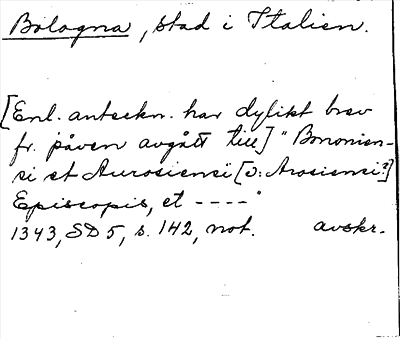 Bologna, stad i Italien.
[Enl. anteckn. har dylikt brev
fr. påven avgått till] "Bononien-
si et Aurosiensi [ɔ: Arosiensi?]
Episcopis, et ----"
1343, SD 5, s. 142, not. avskr.